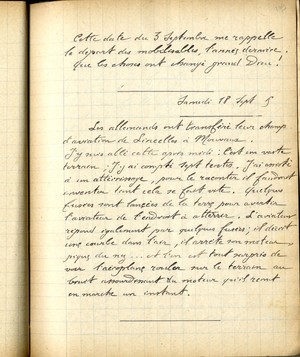 Cette date du 3 Septembre me rappelle
le départ des mobilisables, l'année dernière.
Que les choses ont changé grand Dieu!
Samedi 18 Sept. 5
Les allemands ont transféré leur champ
d'aviation de Linselles à Mouvaux
J'y suis allé cette après midi: C'est un vaste
terrain; j'y ai compté sept tentes, j'ai assisté
à un atterrissage, pour le raconter il faudrait
inventer tant cela se fait vite. Quelques
fusées sont lancées de la terre pour avertir
l'aviateur de l'endroit où atterrir. L'aviateur
répond également par quelques fusées; il décrit
une courbe dans l'air, il arrête son moteur
pique du nez ... et l'on est tout surpris de
voir l'aéroplane rouler sur le terrain au
bruit assourdissant du moteur qu'il remet
en marche un instant.